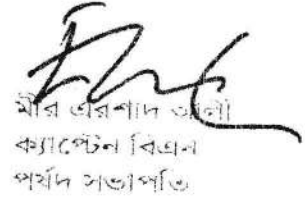 মীর এরশাদ আলী
ক্যাপ্টেন বিএন
পর্ষদ সভাপতি